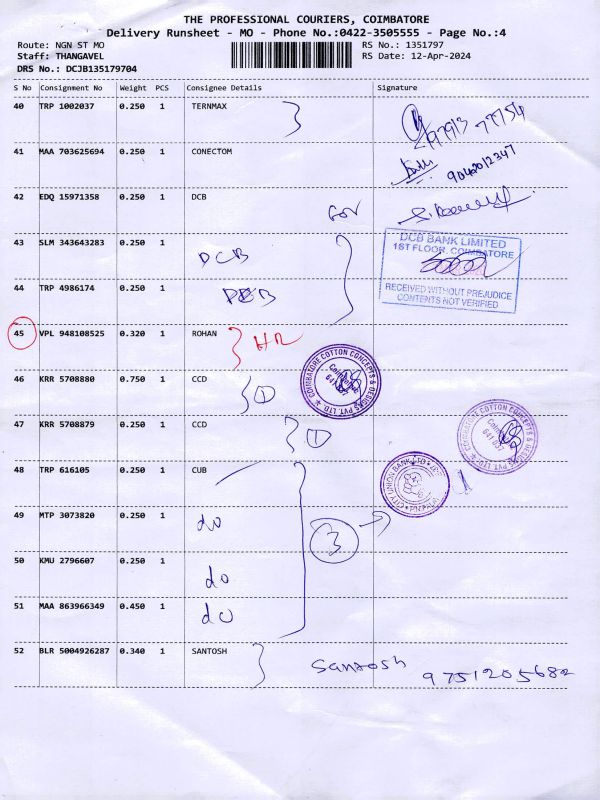 THE PROFESSIONAL COURIERS, COIMBATORE
Delivery Runsheet - MO - Phone No.:0422-3505555 - Page No.:4
Route: NGN ST MO
RS No.: 1351797
Staff: THANGAVEL
RS Date: 12-Apr-2024
DRS No.: DCJB135179704
S No Consignment No Weight PCS Consignee Details Signature
40 TRP 1002037 0.250 1 TERNMAX
97913 77754
41 MAA 703625694 0.250 1 CONECTOM
9042012347
42 EDQ 15971358 0.250 1 DCB
43 SLM 343643283 0.250 1 DCB
DCB BANK LIMITED
1ST FLOOR, COIMBATORE
RECEIVED WITHOUT PREJUDICE
CONTENTS NOT VERIFIED
44 TRP 4986174 0.250 1 DCB
45 VPL 948108525 0.320 1 ROHAN HR
46 KRR 5708880 0.750 1 CCD 1
COIMBATORE COTTON CONCEPTS & DESIGNS PVT. LTD.
Coimbatore
641 037
47 KRR 5708879 0.250 1 CCD 1
COIMBATORE COTTON CONCEPTS & DESIGNS PVT. LTD.
Coimbatore
641 037
48 TRP 616105 0.250 1 CUB
CITY UNION BANK LTD
49 MTP 3073820 0.250 1 do
3
50 KMU 2796607 0.250 1 do
51 MAA 863966349 0.450 1 do
52 BLR 5004926287 0.340 1 SANTOSH
Santosh 9751205682